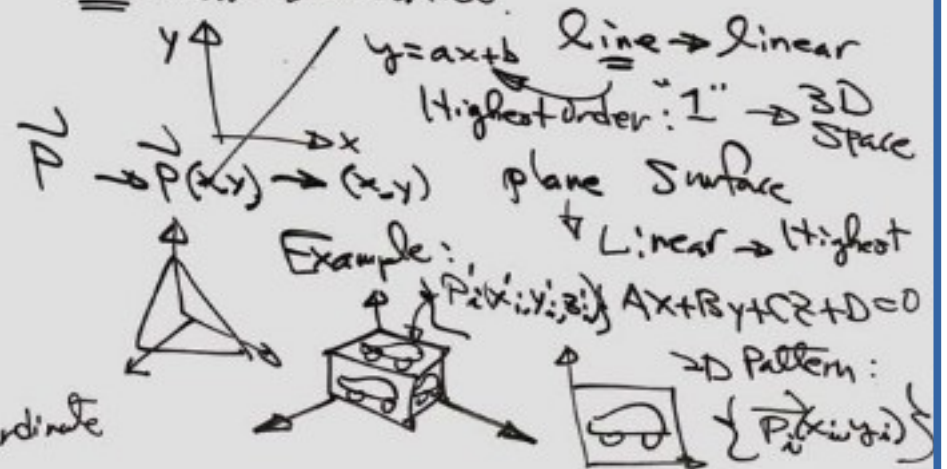 y y=ax+b line → linear
Highest order: "1" → 3D Space
x
P → P(x,y) → (x,y) plane Surface
Linear → Highest
Example:
Pi(xi,yi,zi) Ax+By+Cz+D=0
2D Pattern:
{Pi(xi,yi)}
rdinate